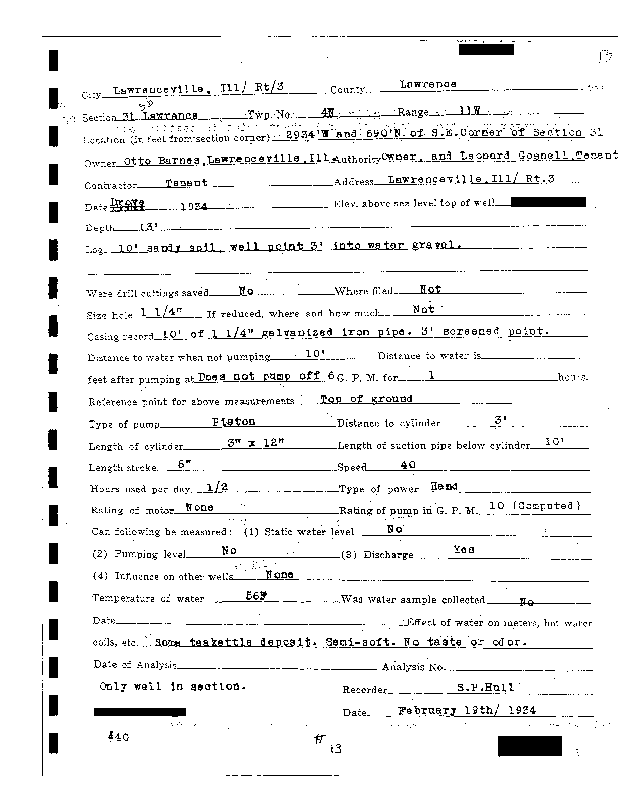 City Lawrenceville, Ill/ Rt/3 County Lawrence
Section 31 Lawrence Twp. No. 4N Range 11W
Location (in feet from section corner) 2934'W and 690'N of S.E.Corner of Section 31
Owner Otto Barnes,Lawrenceville,Ill. Authority Owner, and Leonard Gosnell,Tenant
Contractor Tenant Address Lawrenceville,Ill/ Rt.3
Date Drove 1934 Elev. above sea level top of well
Depth 13'
Log 10' sandy soil, well point 3' into water gravel.
Were drill cuttings saved No Where filed Not
Size hole 1 1/4" If reduced, where and how much Not
Casing record 10' of 1 1/4" galvanized iron pipe. 3' screened point.
Distance to water when not pumping 10' Distance to water is
feet after pumping at Does not pump off 6 G. P. M. for 1 hours.
Reference point for above measurements Top of ground
Type of pump Piston Distance to cylinder 3'
Length of cylinder 3" x 12" Length of suction pipe below cylinder 10'
Length stroke 6" Speed 40
Hours used per day 1/2 Type of power Hand
Rating of motor None Rating of pump in G. P. M. 10 (Computed)
Can following be measured: (1) Static water level No
(2) Pumping level No (3) Discharge Yes
(4) Influence on other wells None
Temperature of water 56F Was water sample collected No
Date Effect of water on meters, hot water
coils, etc. Some teakettle deposit. Semi-soft. No taste or odor.
Date of Analysis Analysis No.
Only well in section. Recorder S.P.Hull
Date February 19th/ 1934
#40
13